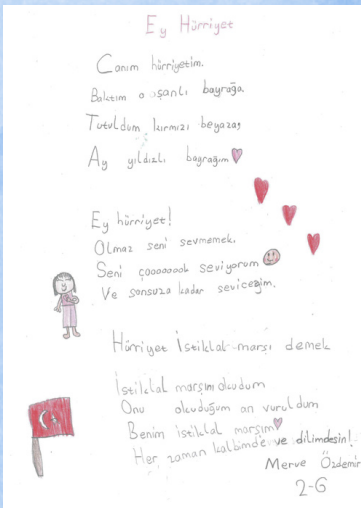 Ey Hürriyet
Canım hürriyetim.
Baktım o şanlı bayrağa
Tutuldum kırmızı beyaza,
Ay yıldızlı bayrağım
Ey hürriyet!
Olmaz seni sevmemek.
Seni çooooook seviyorum
Ve sonsuza kadar seviceğim.
Hürriyet İstiklal marşı demek
İstiklal marşım okudum
Onu okuduğum an vuruldum
Benim istiklal marşım
Her zaman kalbimde ve dilimdesin!
Merve Özdemir
2-G